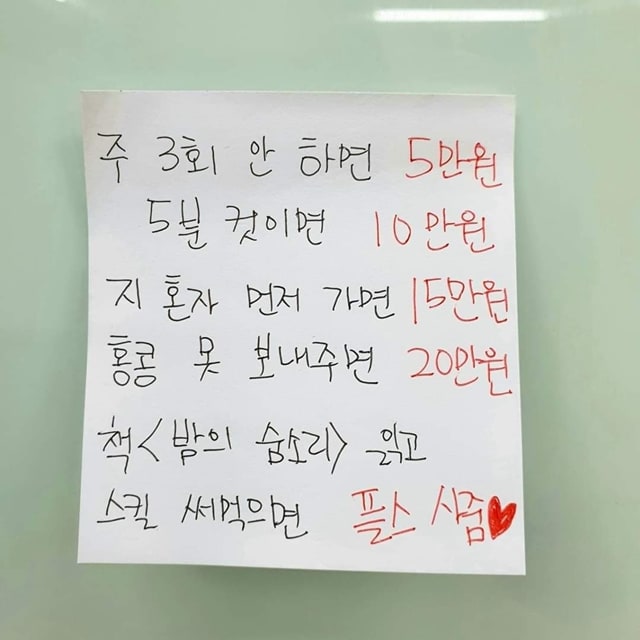 주 3회 안 하면 5만원
5분 컷이면 10만원
지 혼자 먼저 가면 15만원
홍콩 못 보내주면 20만원
책<밤의 숨소리> 읽고
스킬 써먹으면 플스 사줌